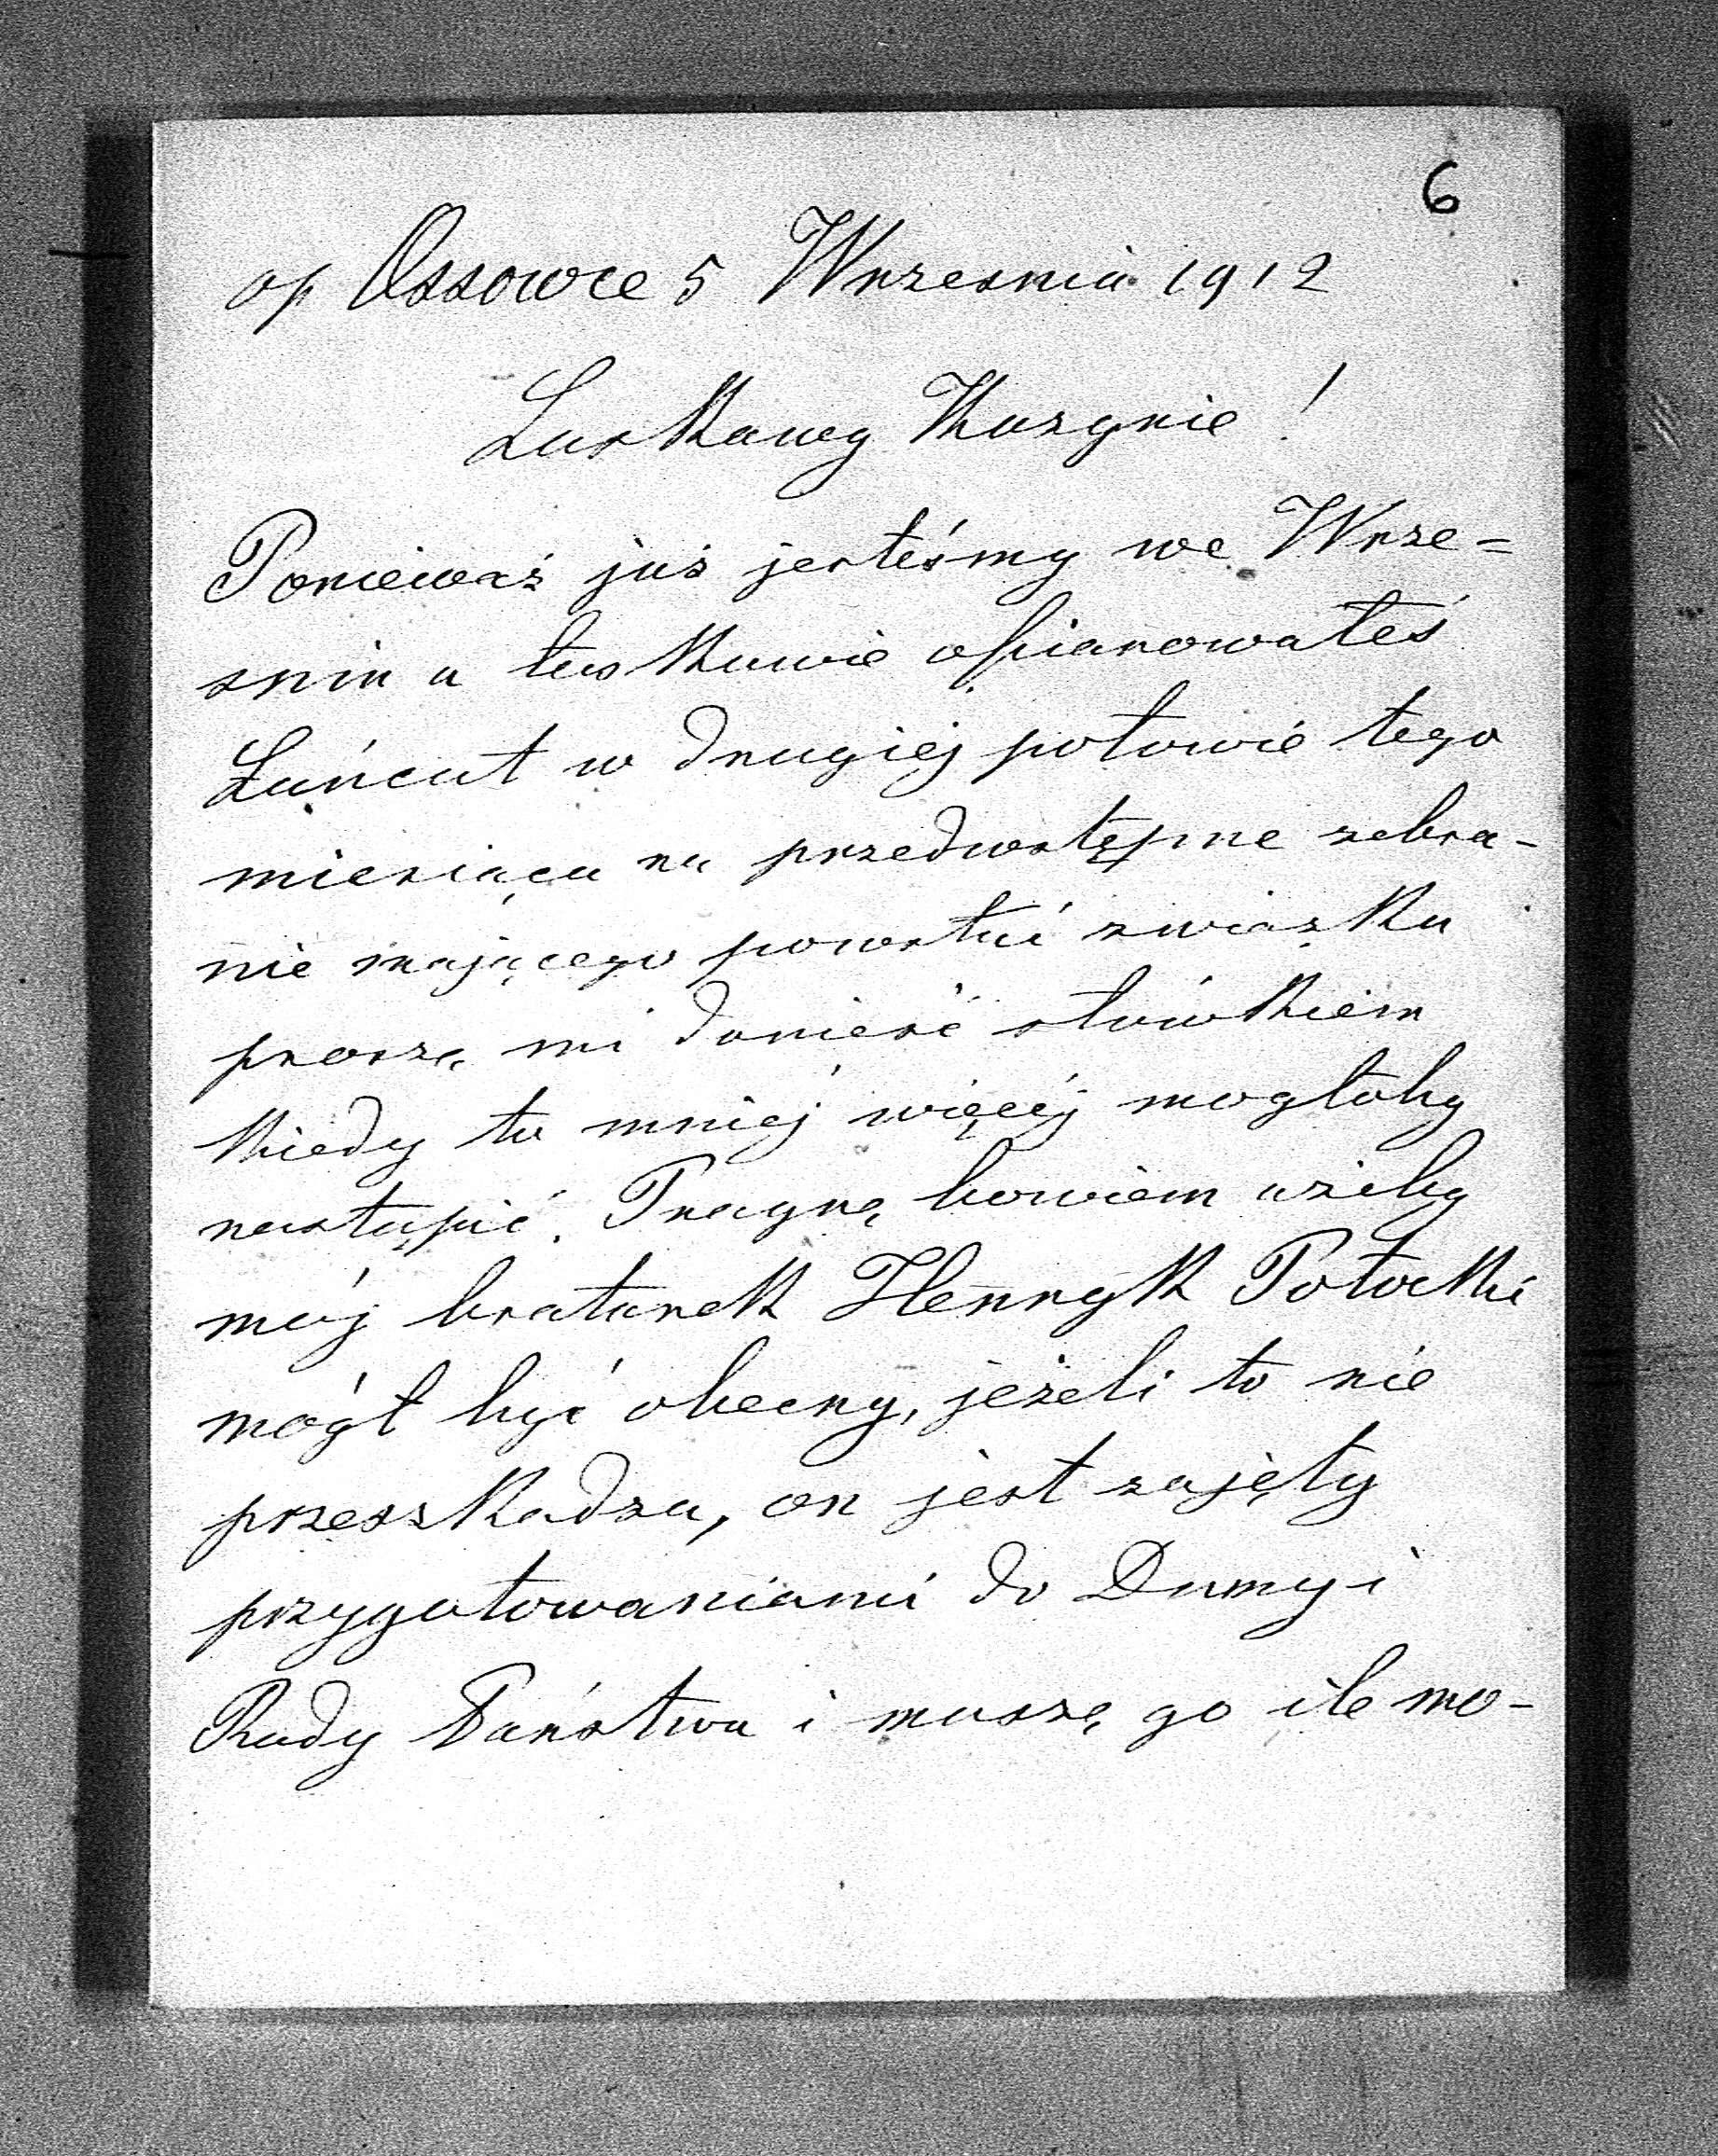 6
op Ossowce 5 Wrzesnia 1912
Łaskawy Kuzynie!
Ponieważ już jesteśmy we Wrze=
sniu a łaskawie ofiarowałeś
Łańcut w drugiej połowie tego
miesiąca na przedwstępne zebra-
nie mającego powstać związku
proszę mi donieść słówkiem
kiedy to mniej więcej mogłoby
nastąpić. Pragnę bowiem ażeby
mój bratanek Henryk Potocki
mógł być obecny, jeżeli to nie
przeszkadza, on jest zajęty
przygotowaniami do Dumy i
Rady Państwa i muszę go ile mo-